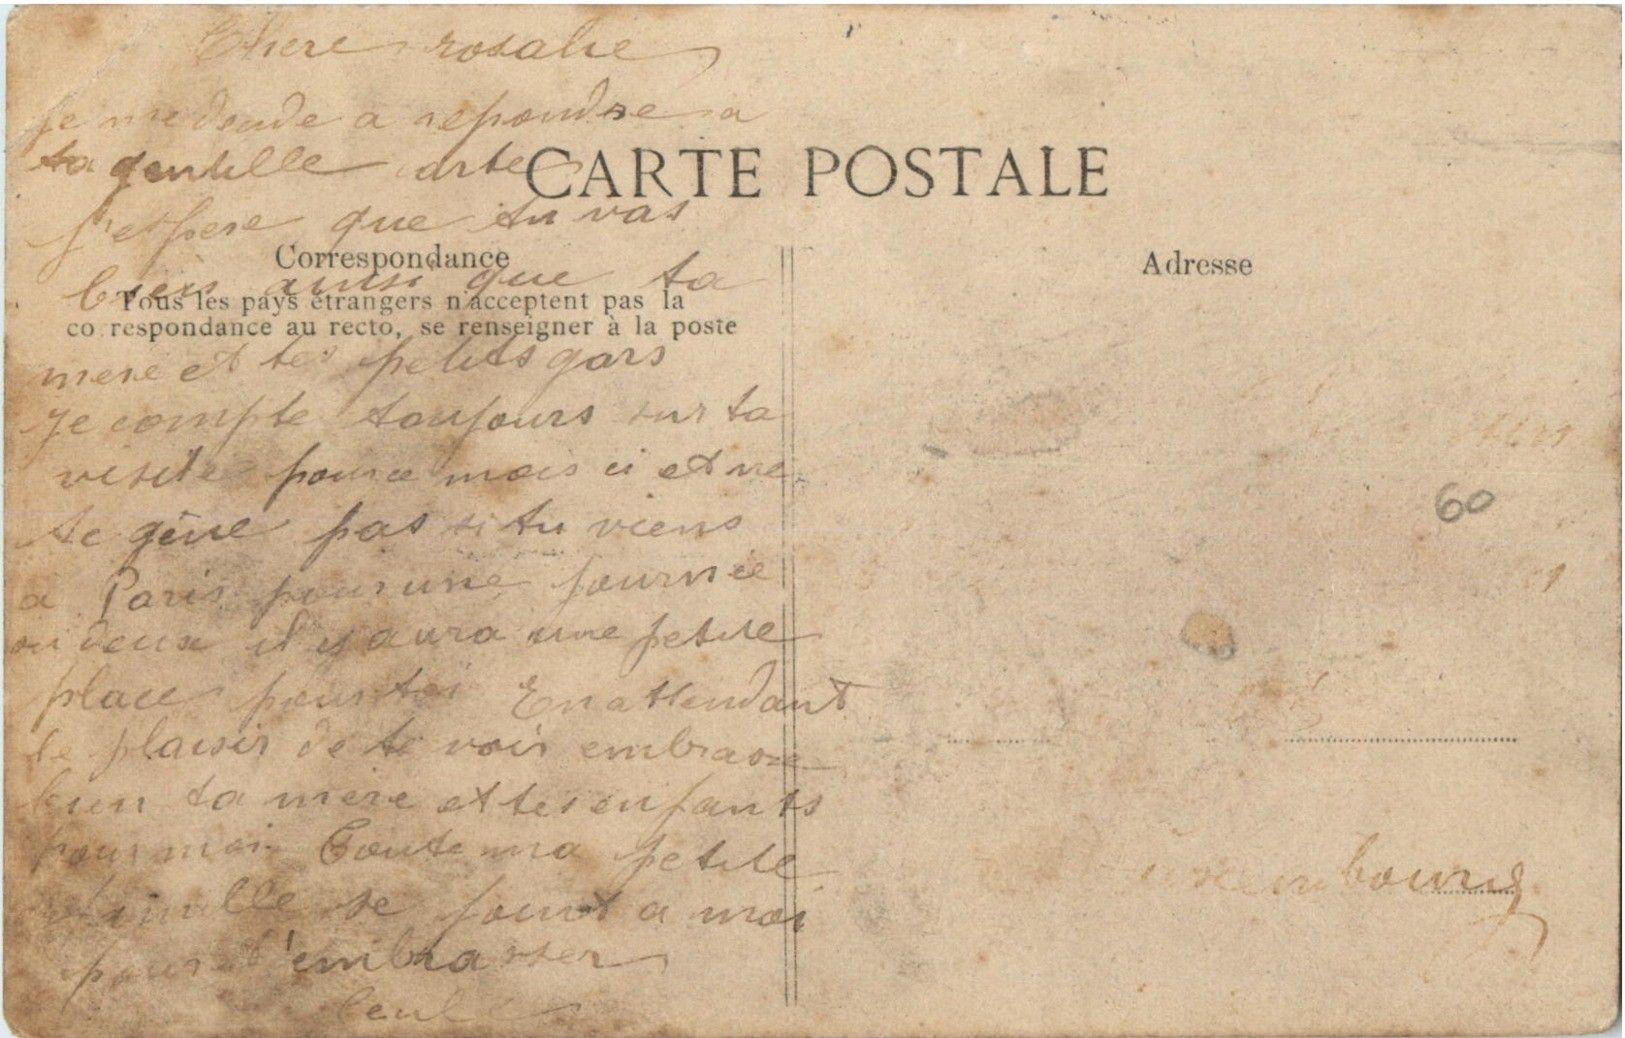 Chere rosalie
je me decide a repondre a
ta gentille carte
CARTE POSTALE
j'espere que tu vas
Correspondance
bien ainsi que ta
Tous les pays étrangers n'acceptent pas la
co respondance au recto, se renseigner à la poste
mere et tes petits gars
je compte toujours sur ta
visite pour ce mois ci et ne
te gêne pas si tu viens
a Paris pour une journee
ou deux il y aura une petite
place pour toi En attendant
le plaisir de te voir embrasse
bien ta mere et tes enfants
pour moi Toute ma petite
famille se joint a moi
pour t'embrasser
Adresse
60